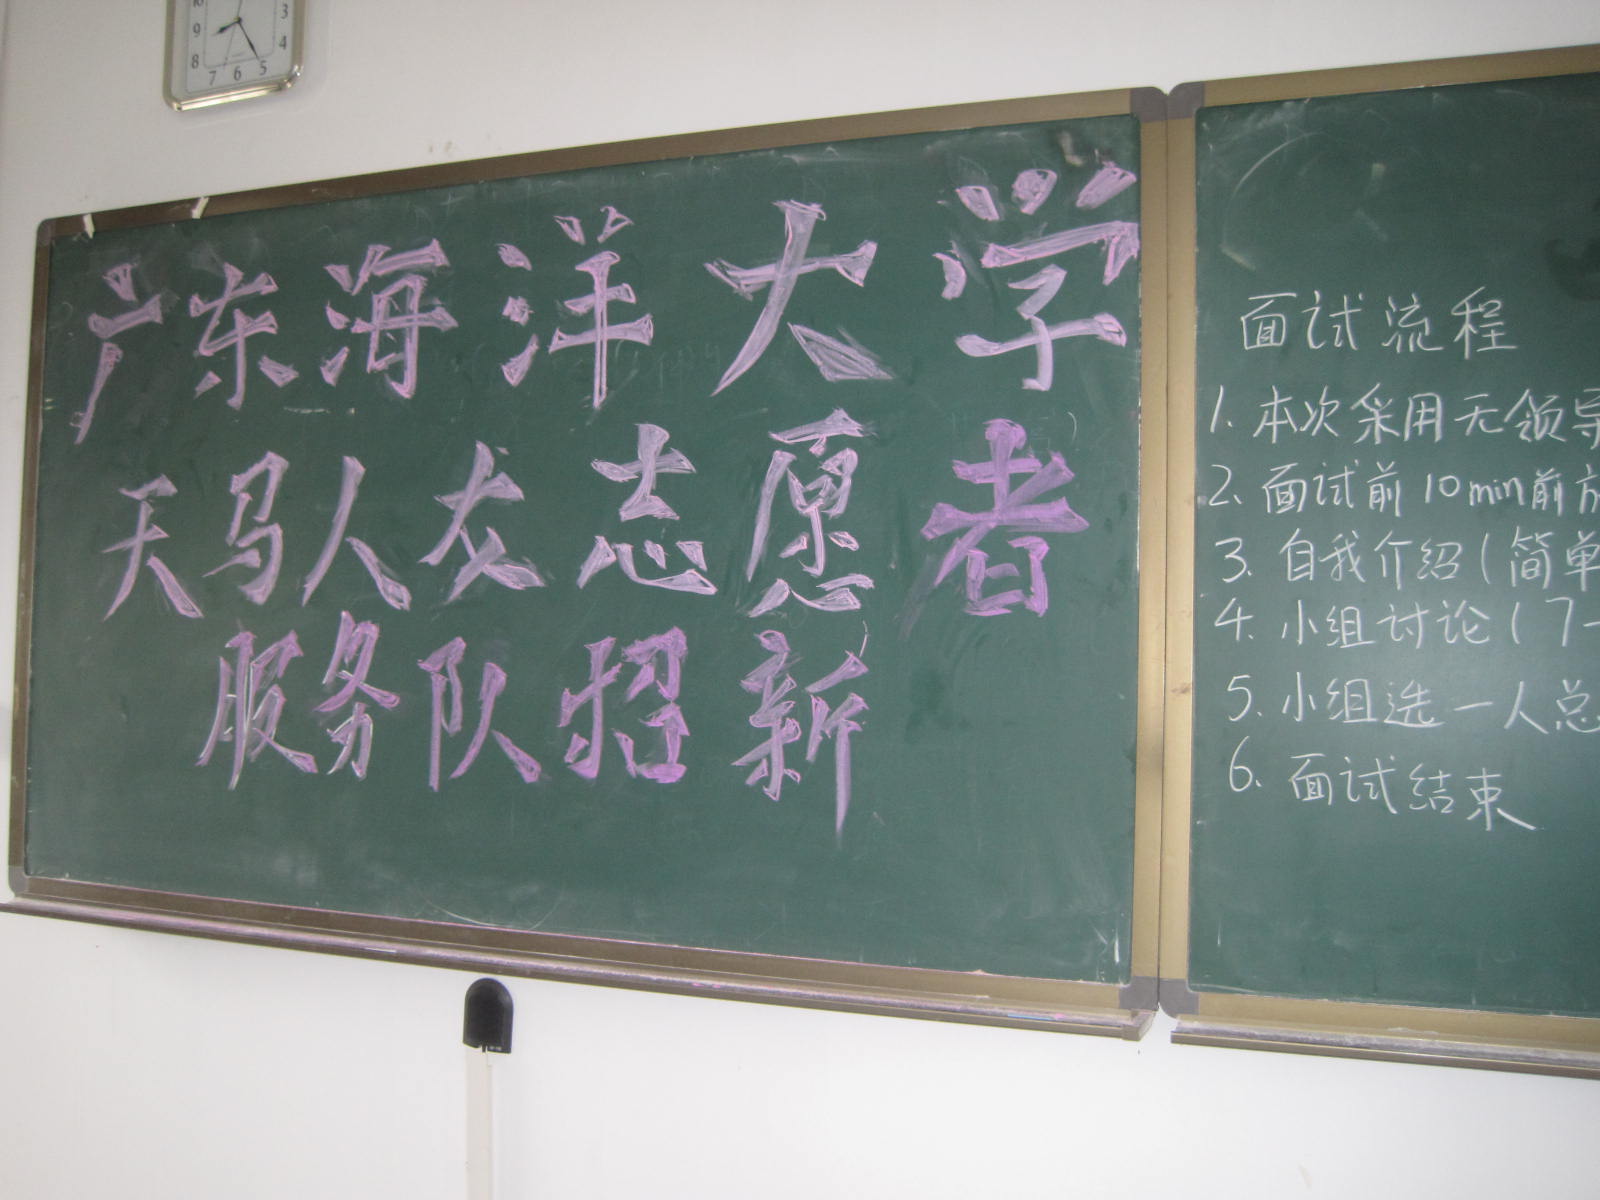 10 3
9 4
8 7 6 5
广东海洋大学
天马人龙志愿者
服务队招新
面试流程
1. 本次采用无领导
2. 面试前10min前
3. 自我介绍(简单
4. 小组讨论(7-
5. 小组选一人总
6. 面试结束